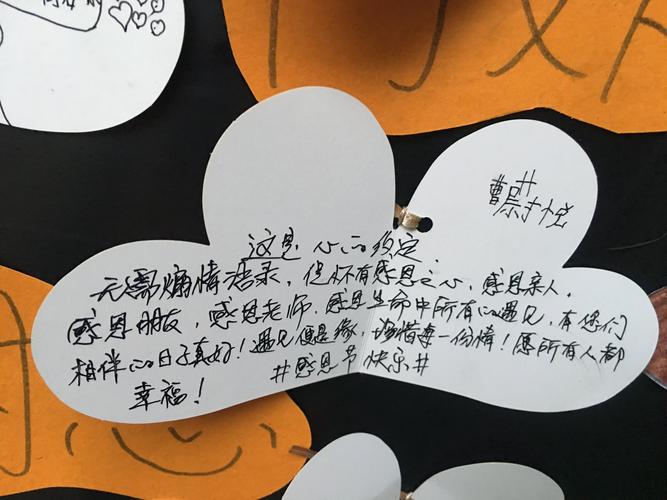 这是心的约定.
无需煽情语录，但怀有感恩之心，感恩亲人，
感恩朋友，感恩老师，感恩生命中所有的遇见，有您们
相伴的日子真好！遇见便是缘，珍惜每一份情！愿所有人都
幸福！
#感恩节快乐#